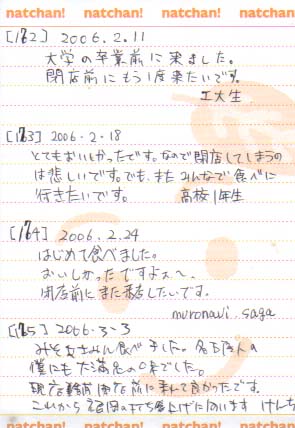 natchan! natchan! natchan! natchan!
[162] 2006.2.11
大学の卒業前に来ました。
閉店前にもう1度来たいです。
工大生
[163] 2006.2.18
とてもおいしかったです。なので閉店してしまうの
は悲しいです。でも、また みんなで食べに
行きたいです。 高校1年生
[164] 2006.2.24
はじめて食べました。
おいしかったですよぉ〜、
閉店前にまた来店したいです。
muronavi saga
[165] 2006.3.3
みそおでん食べました。名古屋人の
僕にも大満足の味でした。
閉店前に来れて良かったです。
これから
natchan! natchan! natchan! natchan!